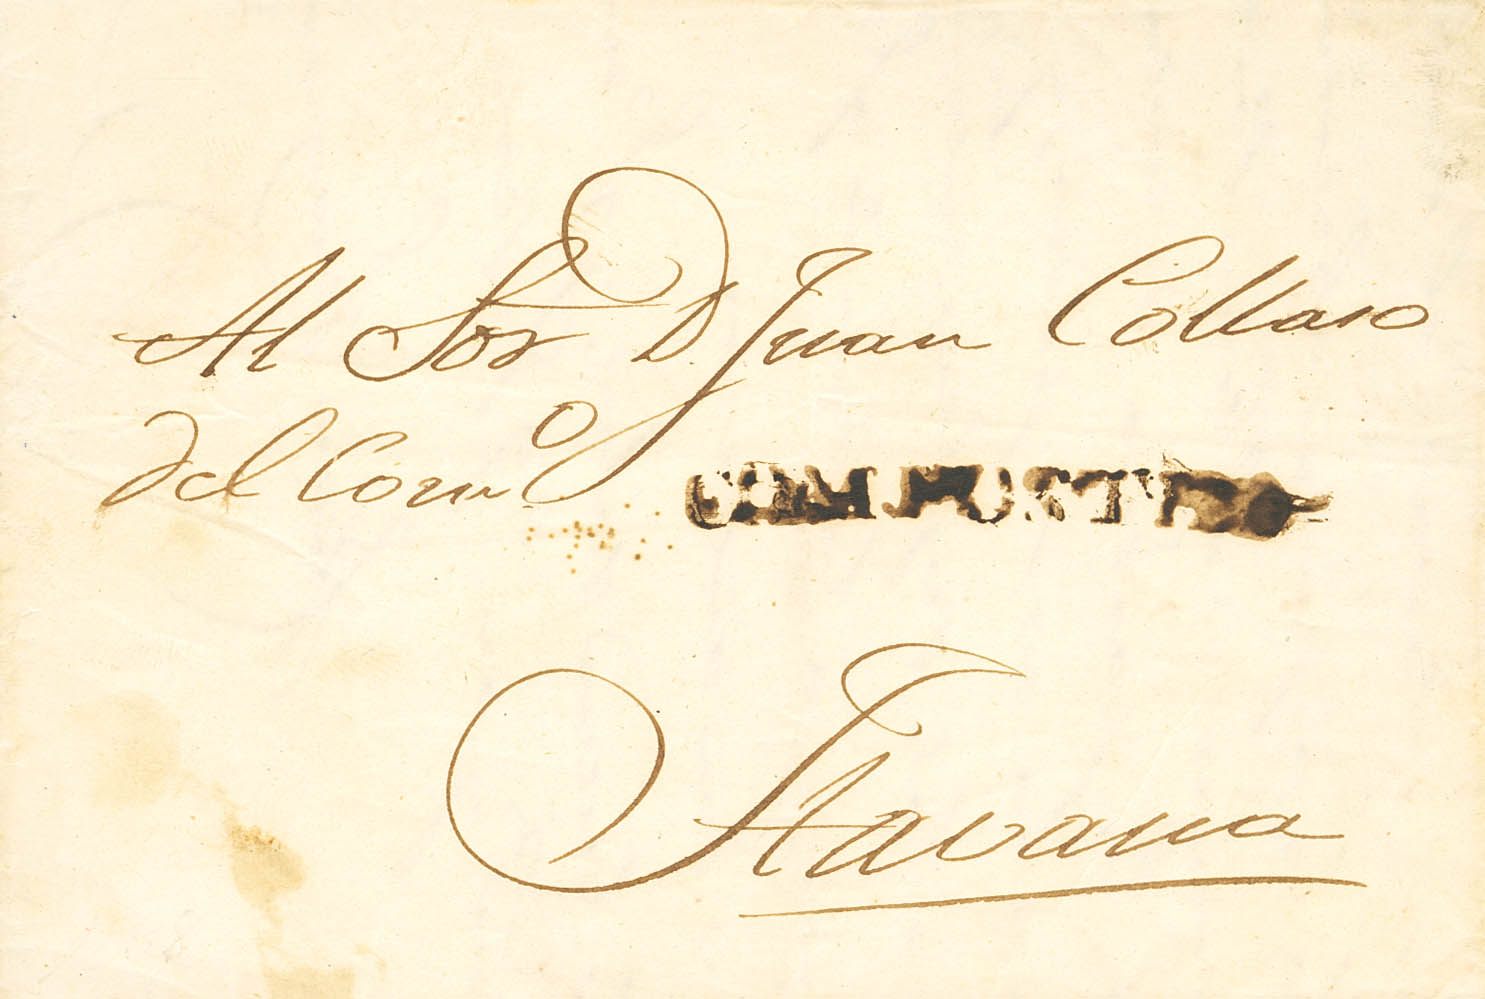 Al Sor D Juan Collaso
del Com.o
COMPOSTELA
Havana